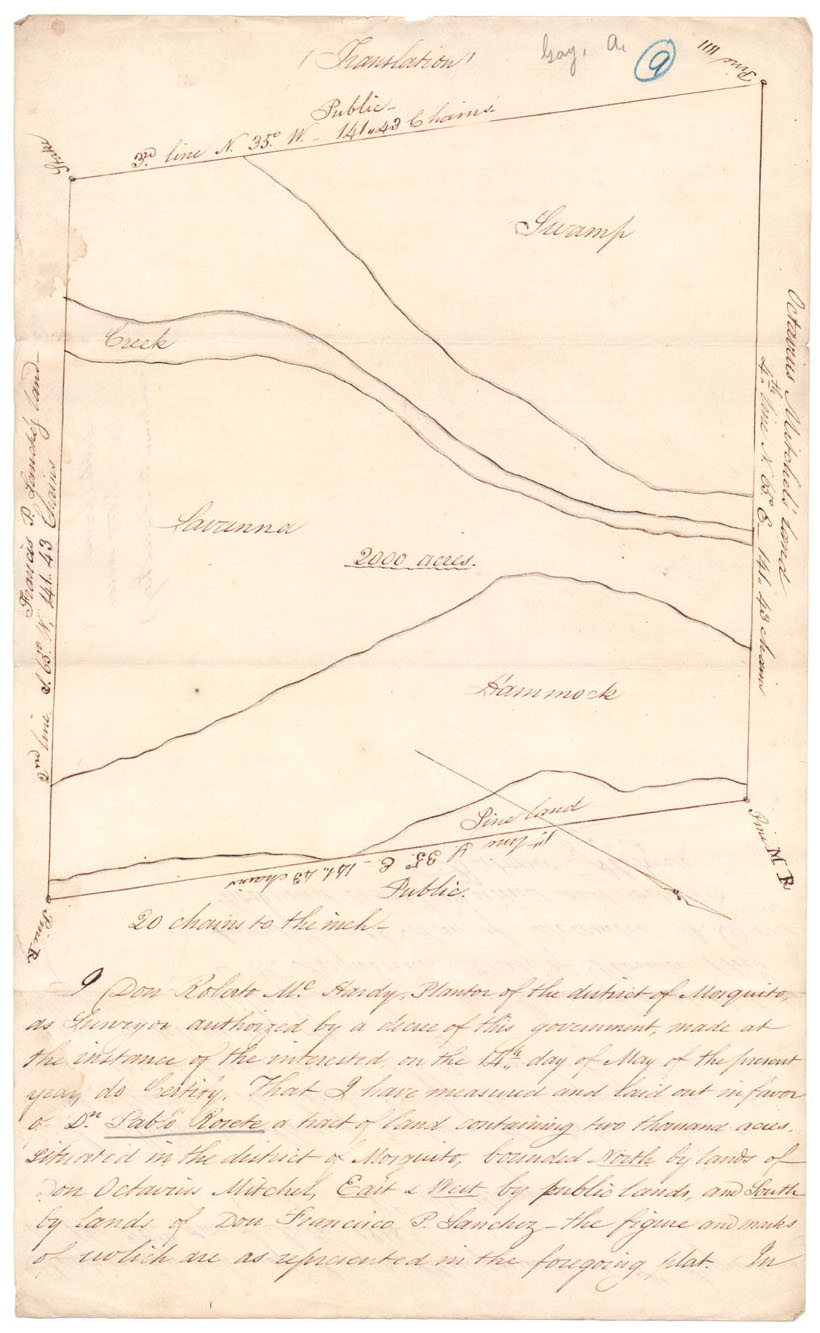 (Translation)
Gay, A.
9
Pine IIII
Public
3rd line N. 35° W. - 141..43 Chains
Stake
Swamp
Creek
Octavius Mitchels' land
4th line N 65° E - 141. 43 chains
Francis P. Sanchez land-
2nd line S. 65° W. 141. 43 Chains
Savanna
2000 acres.
Hammock
Pine land
1st line S. 35° E - 141. 43 chains
Public.
Pine M R
Pine R
20 chains to the inch-
I Don Roberto Mc Hardy, Plantor of the district of Mosquito,
as Surveyor authorized by a decree of this government, made at
the instance of the interested, on the 14th day of May of the present
year, do Certify, That I have measured and laid out in favor
of Dn Pablo Rosete a tract of land containing two thousand acres,
situated in the district of Mosquito, bounded North by lands of
Don Octavius Mitchel, East & West by public lands, and South
by lands of Don Francisco P. Sanchez - the figure and marks
of which are as represented in the foregoing plat. In